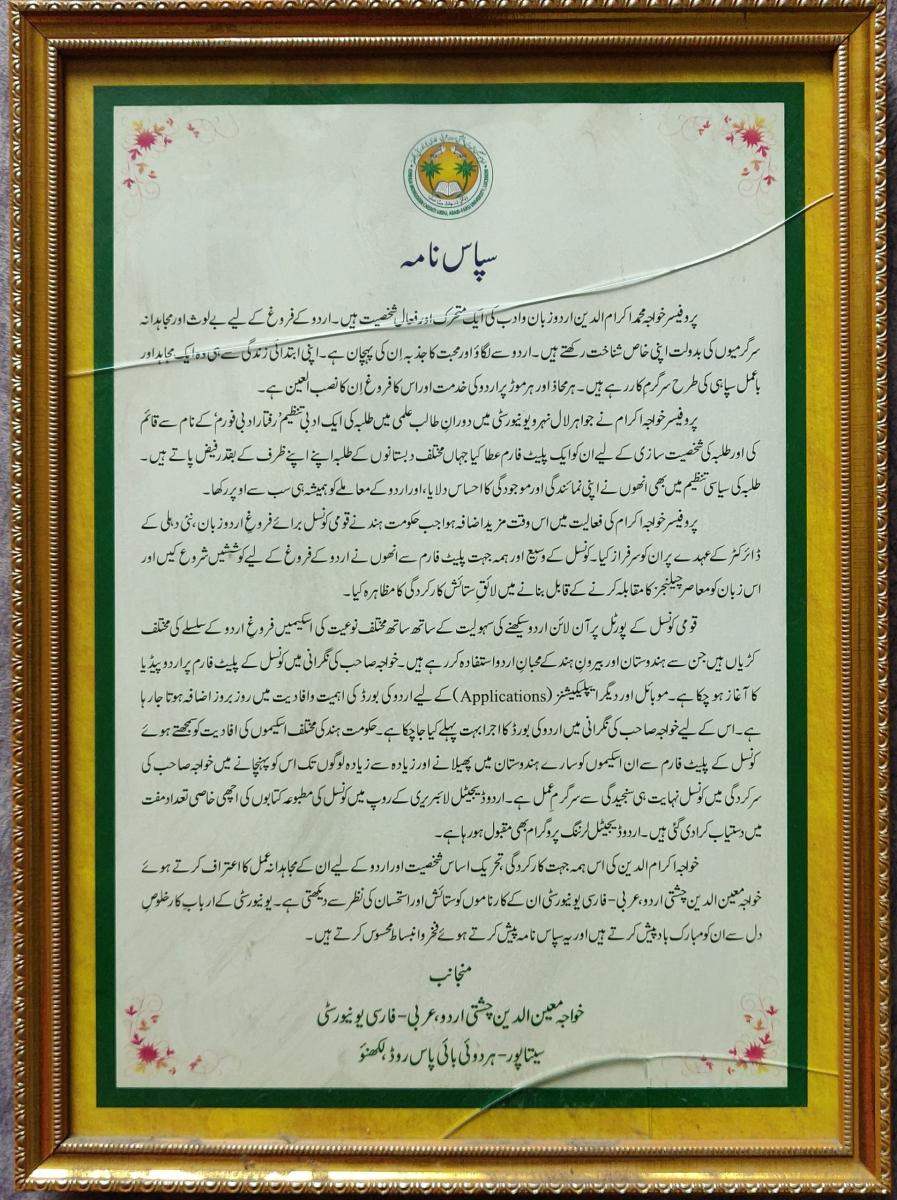 KHWAJA MOINUDDIN CHISHTI URDU, ARABI-FARSI UNIVERSITY, LUCKNOW
سپاس نامہ
پروفیسر خواجہ محمد اکرام الدین اردو زبان و ادب کی ایک متحرک اور فعال شخصیت ہیں۔ اردو کے فروغ کے لیے بے لوث اور مجاہدانہ
سرگرمیوں کی بدولت اپنی خاص شناخت رکھتے ہیں۔ اردو سے لگاؤ اور محبت کا جذبہ اِن کی پہچان ہے۔ اپنی ابتدائی زندگی سے ہی وہ ایک مجاہد اور
باعمل سپاہی کی طرح سرگرم کار رہے ہیں۔ ہر محاذ اور ہر موڑ پر اردو کی خدمت اور اس کا فروغ اِن کا نصب العین ہے۔
پروفیسر خواجہ اکرام نے جواہر لال نہرو یونیورسٹی میں دورانِ طالب علمی میں طلبہ کی ایک ادبی تنظیم ’رفتار ادبی فورم‘ کے نام سے قائم
کی اور طلبہ کی شخصیت سازی کے لیے ان کو ایک پلیٹ فارم عطا کیا جہاں مختلف دبستانوں کے طلبہ اپنے اپنے ظرف کے بقدر فیض پاتے ہیں۔
طلبہ کی سیاسی تنظیم میں بھی انھوں نے اپنی نمائندگی اور موجودگی کا احساس دلایا، اور اردو کے معاملے کو ہمیشہ ہی سب سے اوپر رکھا۔
پروفیسر خواجہ اکرام کی فعالیت میں اس وقت مزید اضافہ ہوا جب حکومت ہند نے قومی کونسل برائے فروغِ اردو زبان، نئی دہلی کے
ڈائرکٹر کے عہدے پر ان کو سرفراز کیا۔ کونسل کے وسیع اور ہمہ جہت پلیٹ فارم سے انھوں نے اردو کے فروغ کے لیے کوششیں شروع کیں اور
اس زبان کو معاصر چیلنجز کا مقابلہ کرنے کے قابل بنانے میں لائقِ ستائش کارکردگی کا مظاہرہ کیا۔
قومی کونسل کے پورٹل پر آن لائن اردو سیکھنے کی سہولیت کے ساتھ ساتھ مختلف نوعیت کی اسکیمیں فروغِ اردو کے سلسلے کی مختلف
کڑیاں ہیں جن سے ہندوستان اور بیرونِ ہند کے محبانِ اردو استفادہ کر رہے ہیں۔ خواجہ صاحب کی نگرانی میں کونسل کے پلیٹ فارم پر اردو پیڈیا
کا آغاز ہو چکا ہے۔ موبائل اور دیگر ایپلیکیشنز (Applications) کے لیے اردو کی بورڈ کی اہمیت و افادیت میں روز بروز اضافہ ہوتا جا رہا
ہے۔ اس کے لیے خواجہ صاحب کی نگرانی میں اردو کی بورڈ کا اجرا بہت پہلے کیا جا چکا ہے۔ حکومت ہند کی مختلف اسکیموں کی افادیت کو سمجھتے ہوئے
کونسل کے پلیٹ فارم سے ان اسکیموں کو سارے ہندوستان میں پھیلانے اور زیادہ سے زیادہ لوگوں تک اس کو پہنچانے میں خواجہ صاحب کی
سرکردگی میں کونسل نہایت ہی سنجیدگی سے سرگرمِ عمل ہے۔ اردو ڈیجیٹل لائبریری کے روپ میں کونسل کی مطبوعہ کتابوں کی اچھی خاصی تعداد مفت
میں دستیاب کرا دی گئی ہیں۔ اردو ڈیجیٹل لرننگ پروگرام بھی مقبول ہو رہا ہے۔
خواجہ اکرام الدین کی اس ہمہ جہت کارکردگی، تحریک اساس شخصیت اور اردو کے لیے ان کے مجاہدانہ عمل کا اعتراف کرتے ہوئے
خواجہ معین الدین چشتی اردو، عربی - فارسی یونیورسٹی ان کے کارناموں کو ستائش اور استحسان کی نظر سے دیکھتی ہے۔ یونیورسٹی کے اربابِ کار خلوصِ
دل سے ان کو مبارک باد پیش کرتے ہیں اور یہ سپاس نامہ پیش کرتے ہوئے فخر و انبساط محسوس کرتے ہیں۔
منجانب
خواجہ معین الدین چشتی اردو، عربی - فارسی یونیورسٹی
سیتاپور - ہردوئی بائی پاس روڈ، لکھنؤ